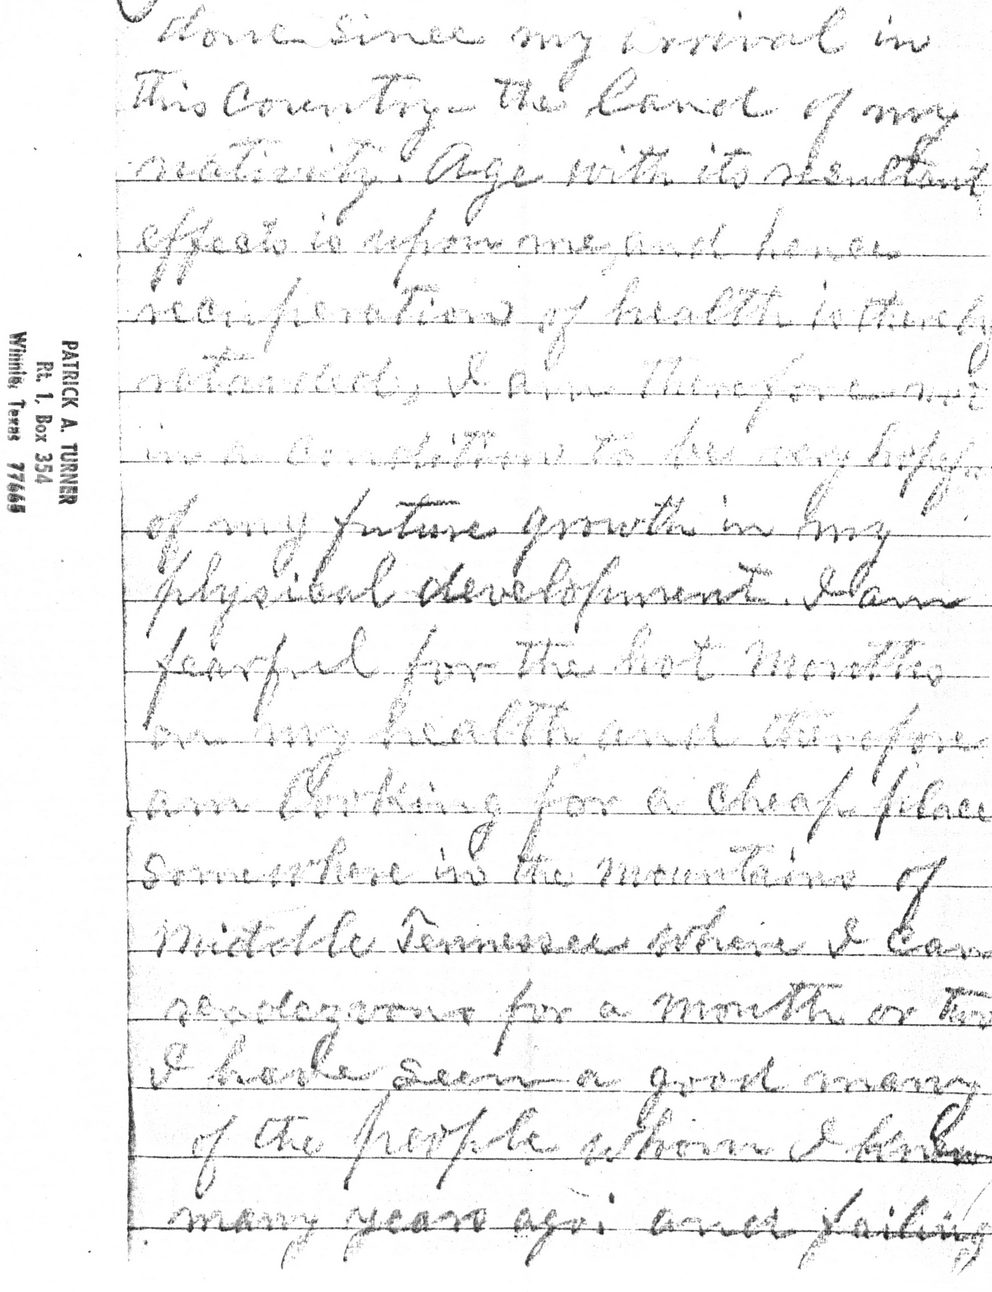 done since my arrival in
this Country - the land of my
nativity. Age with its resultant
effects is upon me, and hence
recuperation of health is thereby
retarded, I am therefore not
in a condition to be very hopeful
of my future growth in my
physical development. I am
fearful for the hot months
on my health and therefore
am looking for a cheap place
somewhere in the mountains of
Middle Tennessee where I can
rendezvous for a month or two
I have seen a good many
of the people whom I knew
many years ago; and failing
PATRICK A. TURNER
Rt. 1, Box 354
Winnie, Texas 77665